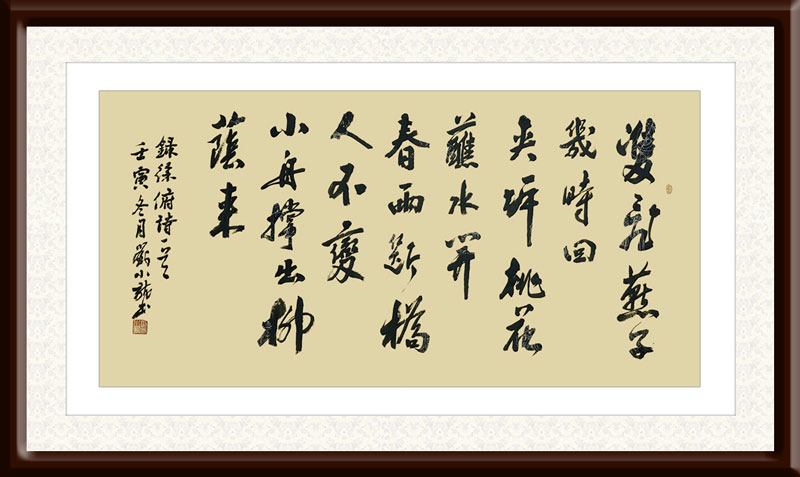 雙飛燕子
幾時回
夾岸桃花
蘸水開
春雨斷橋
人不變
小舟撐出柳
蔭來
錄徐俯詩一首
壬寅冬月劉小龍書